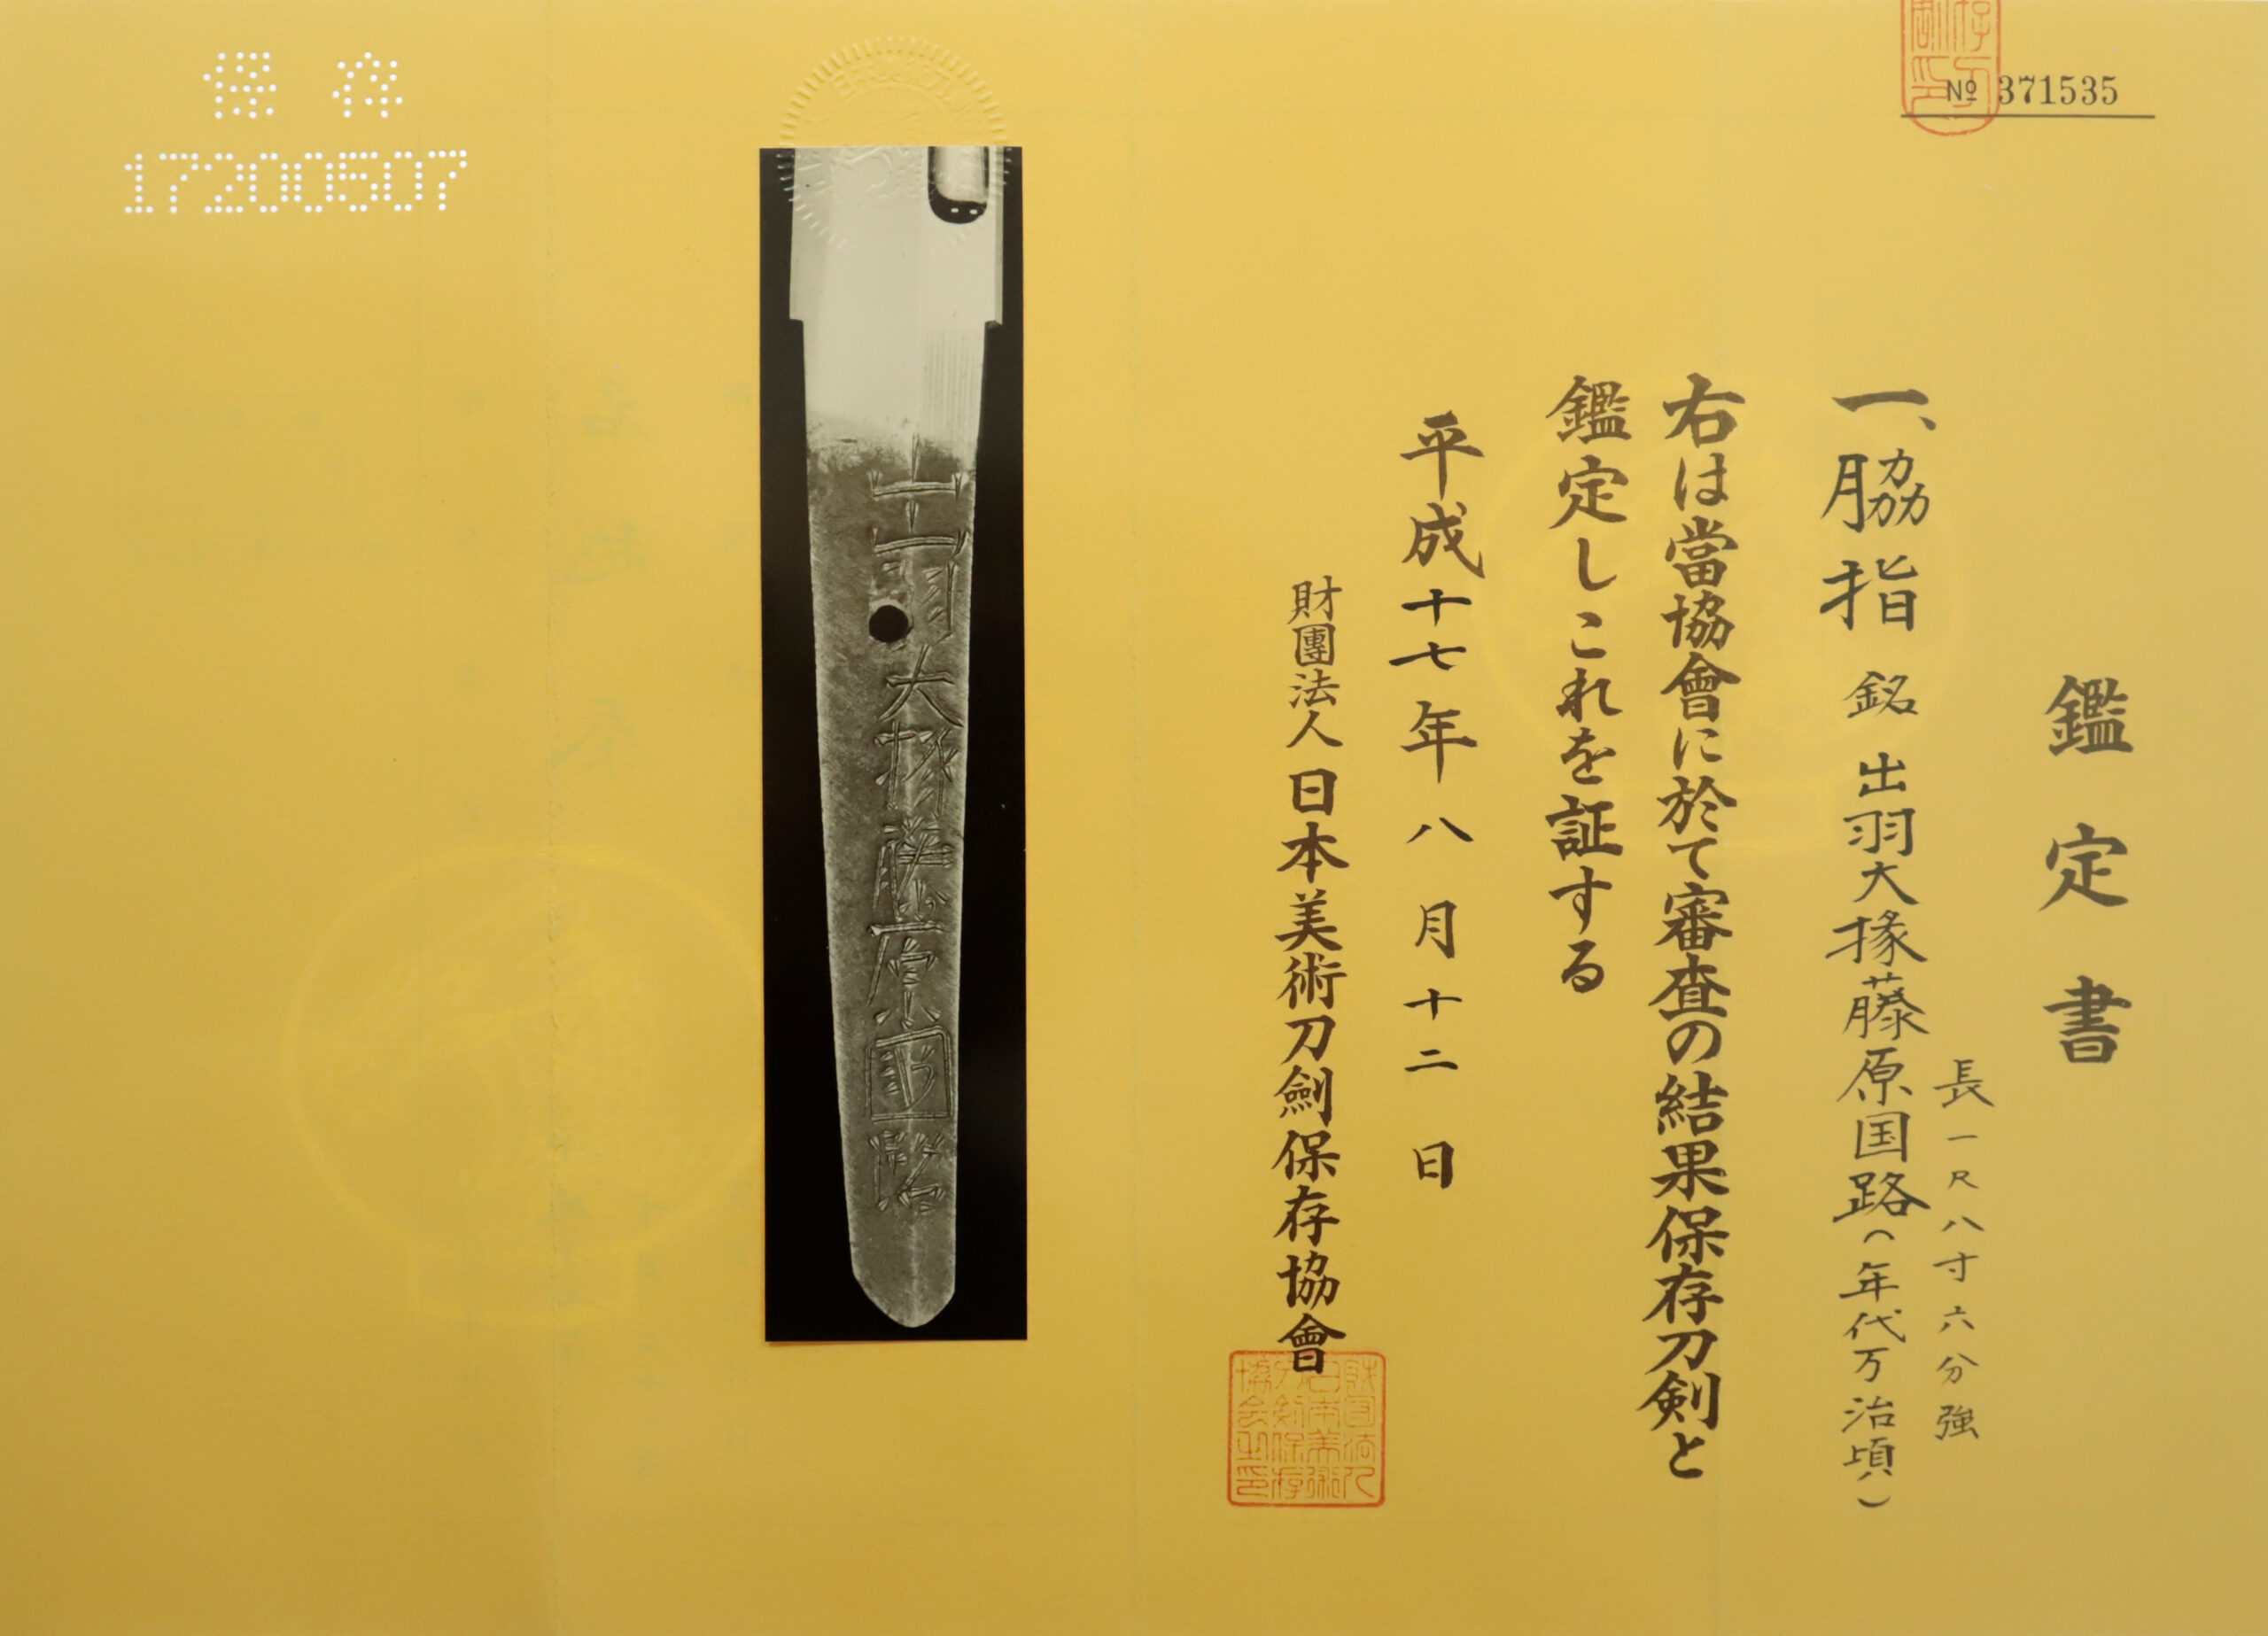 鑑定書
一、脇指 銘 出羽大掾藤原国路(年代万治頃)
長一尺八寸六分強
右は當協會に於て審査の結果保存刀剣と
鑑定しこれを証する
平成十七年八月十二日
財團法人日本美術刀劍保存協會
№ 371535
保存
17200507
出羽大掾藤原國路